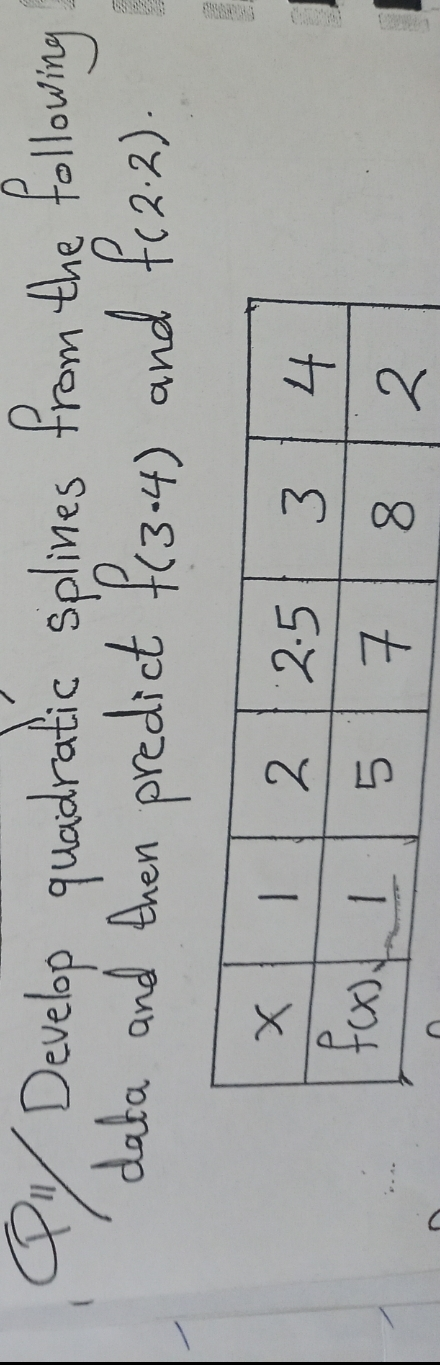 Q// Develop quadratic splines from the following
data and then predict f(3.4) and f(2.2).
x 1 2 2.5 3 4
f(x) 1 5 7 8 2